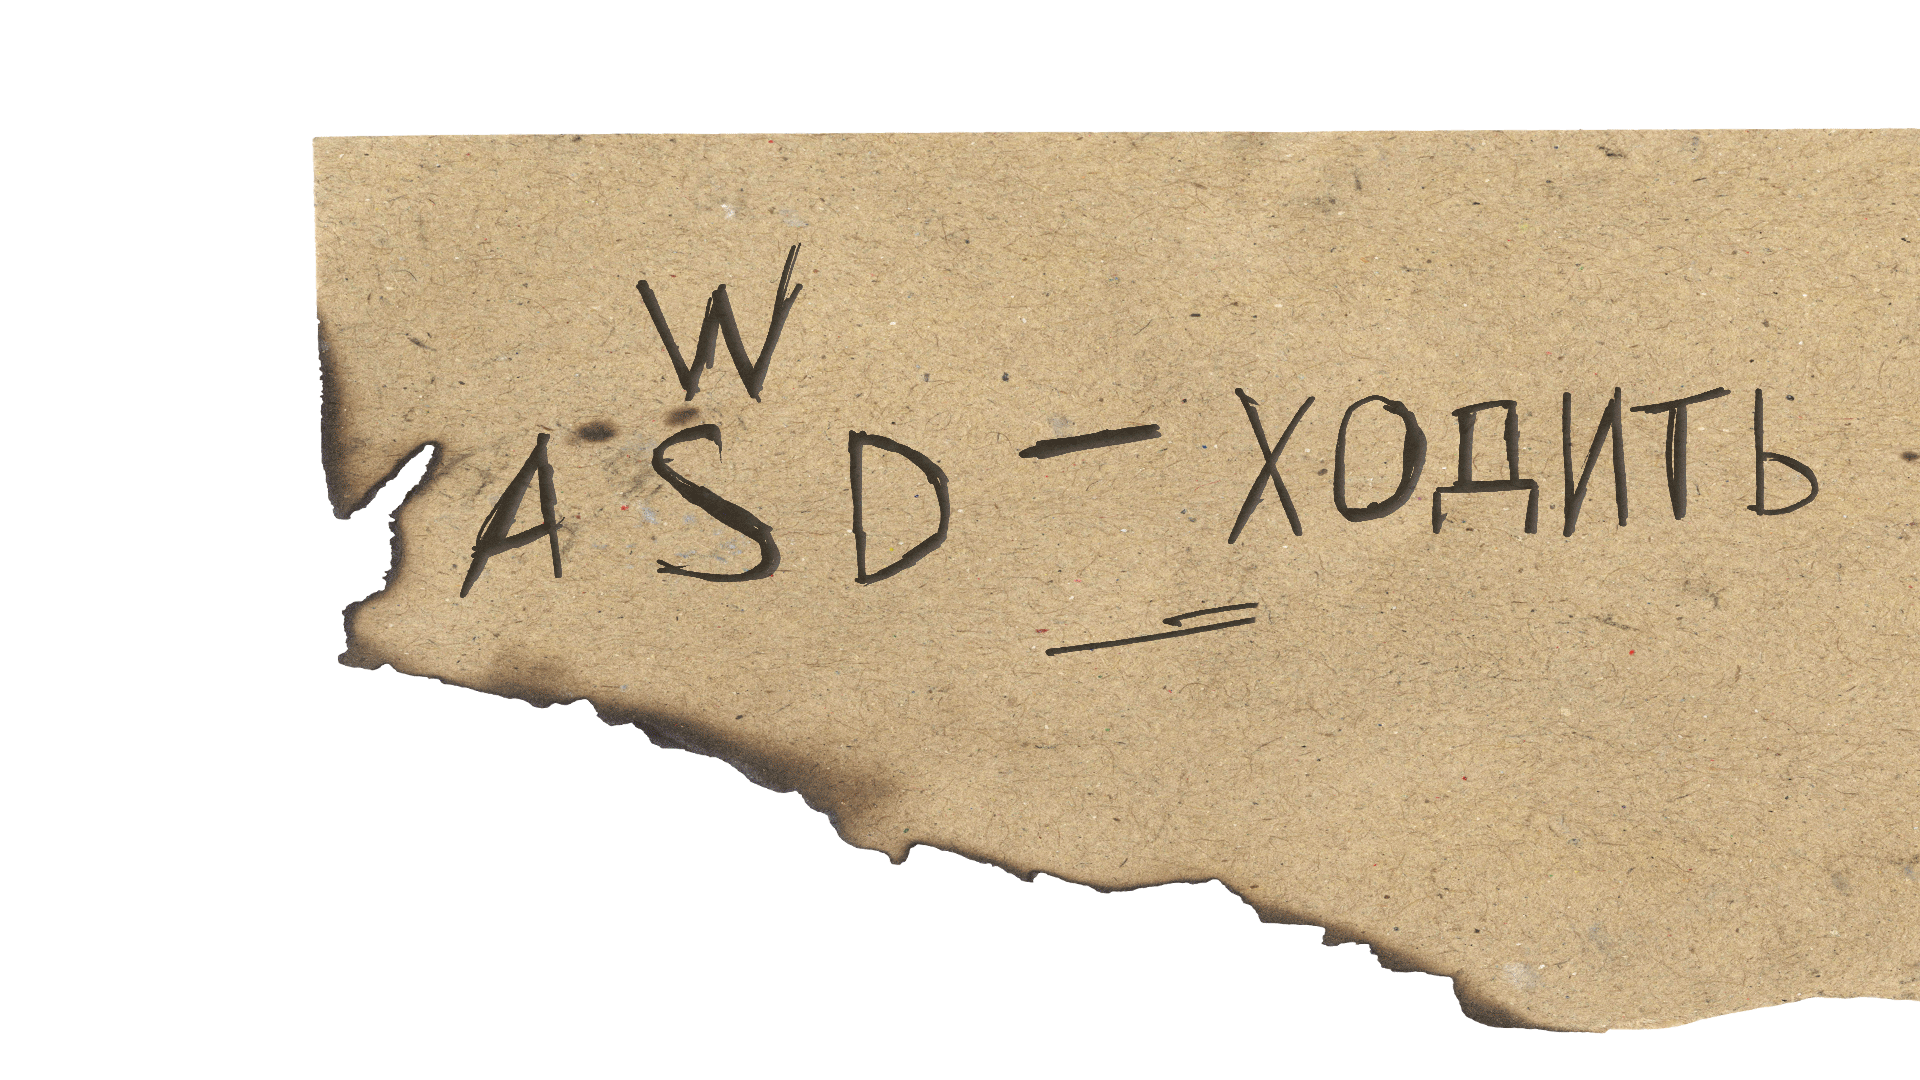 W
A S D - ХОДИТЬ